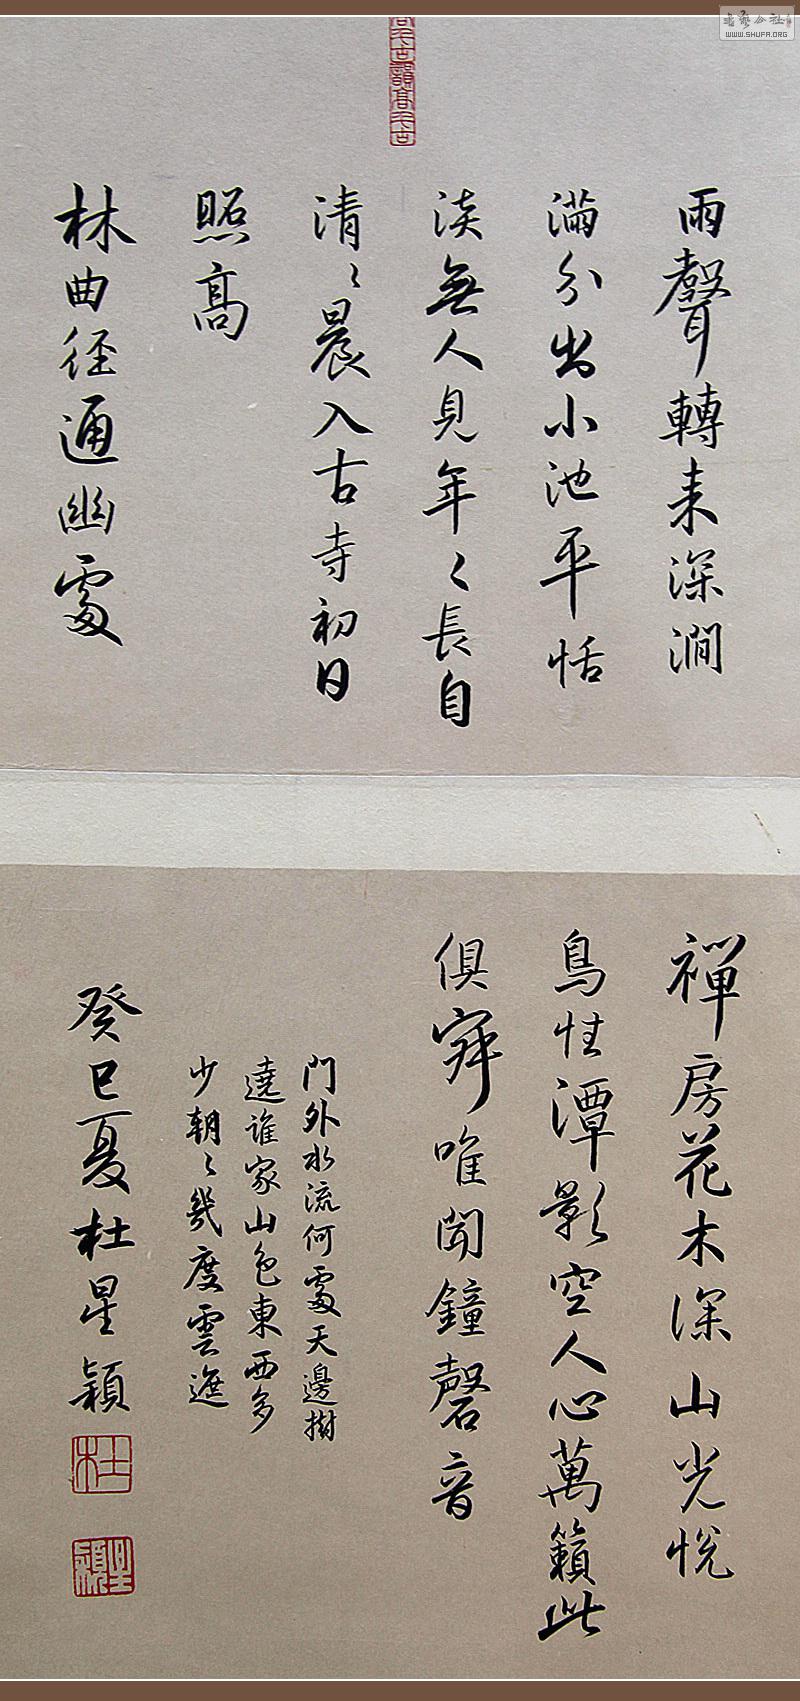 雨聲轉來深澗
滿分出小池平恬
淡無人見年〻長自
清〻晨入古寺初日
照高
林曲徑通幽處
禪房花木深山光悅
鳥性潭影空人心萬籟此
俱寂唯聞鐘磬音
門外水流何處天邊樹
遶誰家山色東西多
少朝〻幾度雲遮
癸巳夏杜星穎
杜
星穎
書藝公社
WWW.SHUFA.ORG